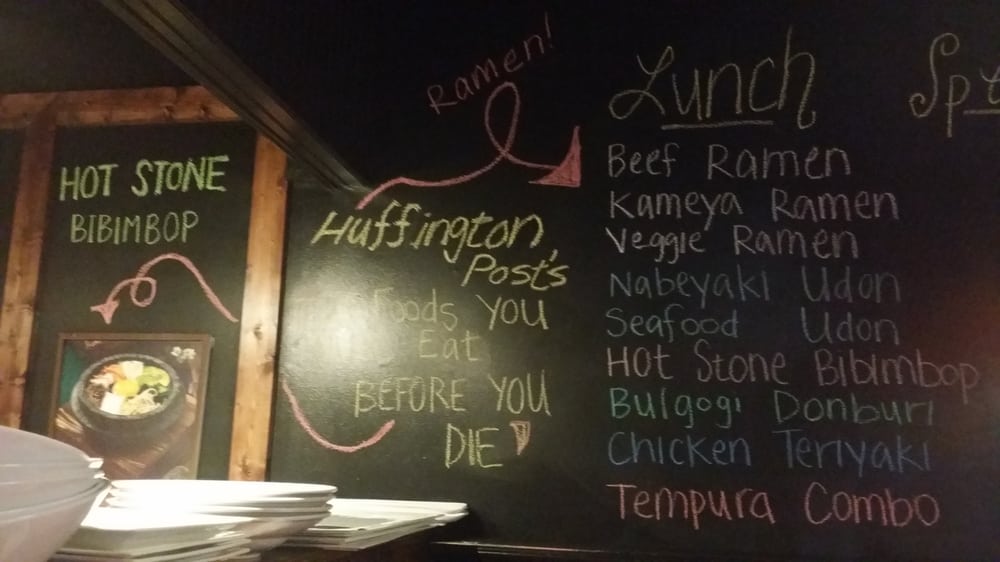 HOT STONE
BIBIMBOP
Ramen!
Huffington
Post's
Foods YOU
Eat
BEFORE YOU
DIE
Lunch
Beef Ramen
Kameya Ramen
Veggie Ramen
Nabeyaki Udon
Seafood Udon
Hot Stone Bibimbop
Bulgogi Donburi
Chicken Teriyaki
Tempura Combo